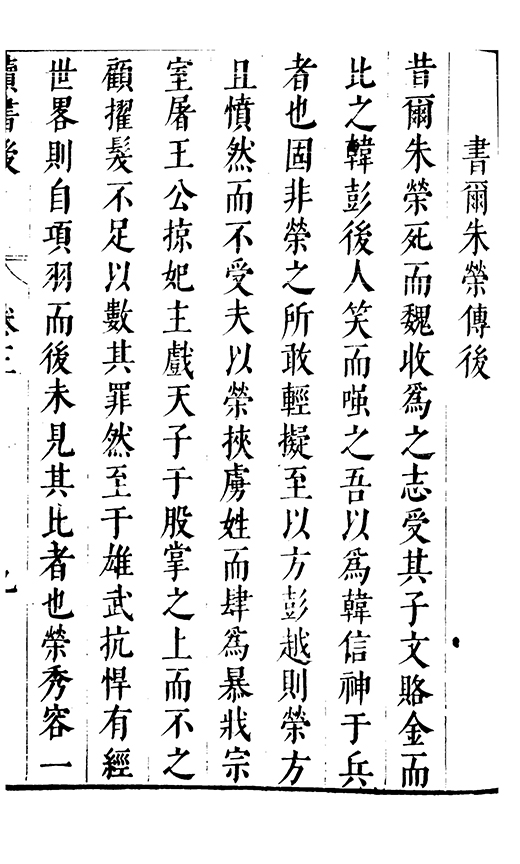 書爾朱榮傳後
昔爾朱榮死而魏收爲之志受其子文賂金而
比之韓彭後人笑而嗤之吾以爲韓信神于兵
者也固非榮之所敢輕擬至以方彭越則榮方
且憤然而不受夫以榮挾虜姓而肆爲暴戕宗
室屠王公掠妃主戲天子于股掌之上而不之
顧擢髮不足以數其罪然至于雄武抗悍有經
世畧則自項羽而後未見其比者也榮秀容一
讀書後
卷三